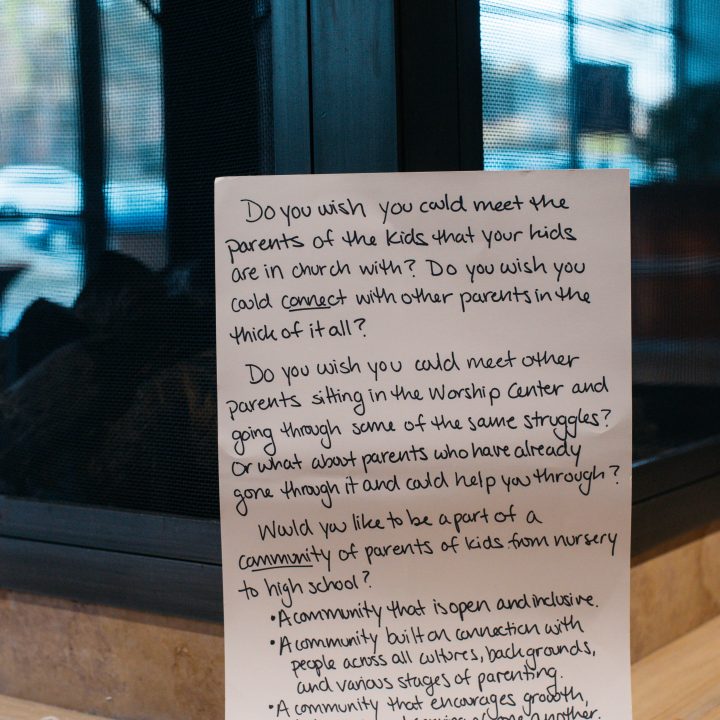 Do you wish you could meet the
parents of the kids that your kids
are in church with? Do you wish you
could connect with other parents in the
thick of it all?
Do you wish you could meet other
parents sitting in the Worship Center and
going through some of the same struggles?
Or what about parents who have already
gone through it and could help you through?
Would you like to be a part of a
community of parents of kids from nursery
to high school?
• A community that is open and inclusive.
• A community built on connection with
people across all cultures, backgrounds,
and various stages of parenting.
• A community that encourages growth,
one another.